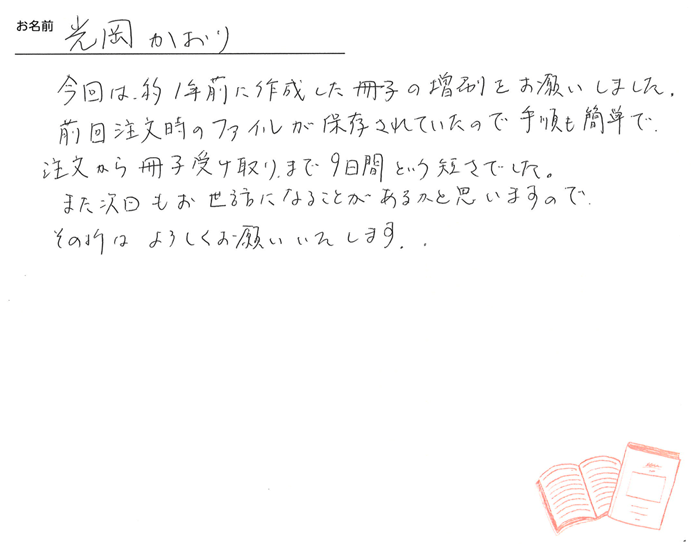 お名前 光岡かおり
今回は、約1年前に作成した冊子の増刷をお願いしました。
前回注文時のファイルが保存されていたので手順も簡単で、
注文から冊子受け取りまで9日間という短さでした。
また次回もお世話になることがあるかと思いますので、
その折はよろしくお願いいたします。